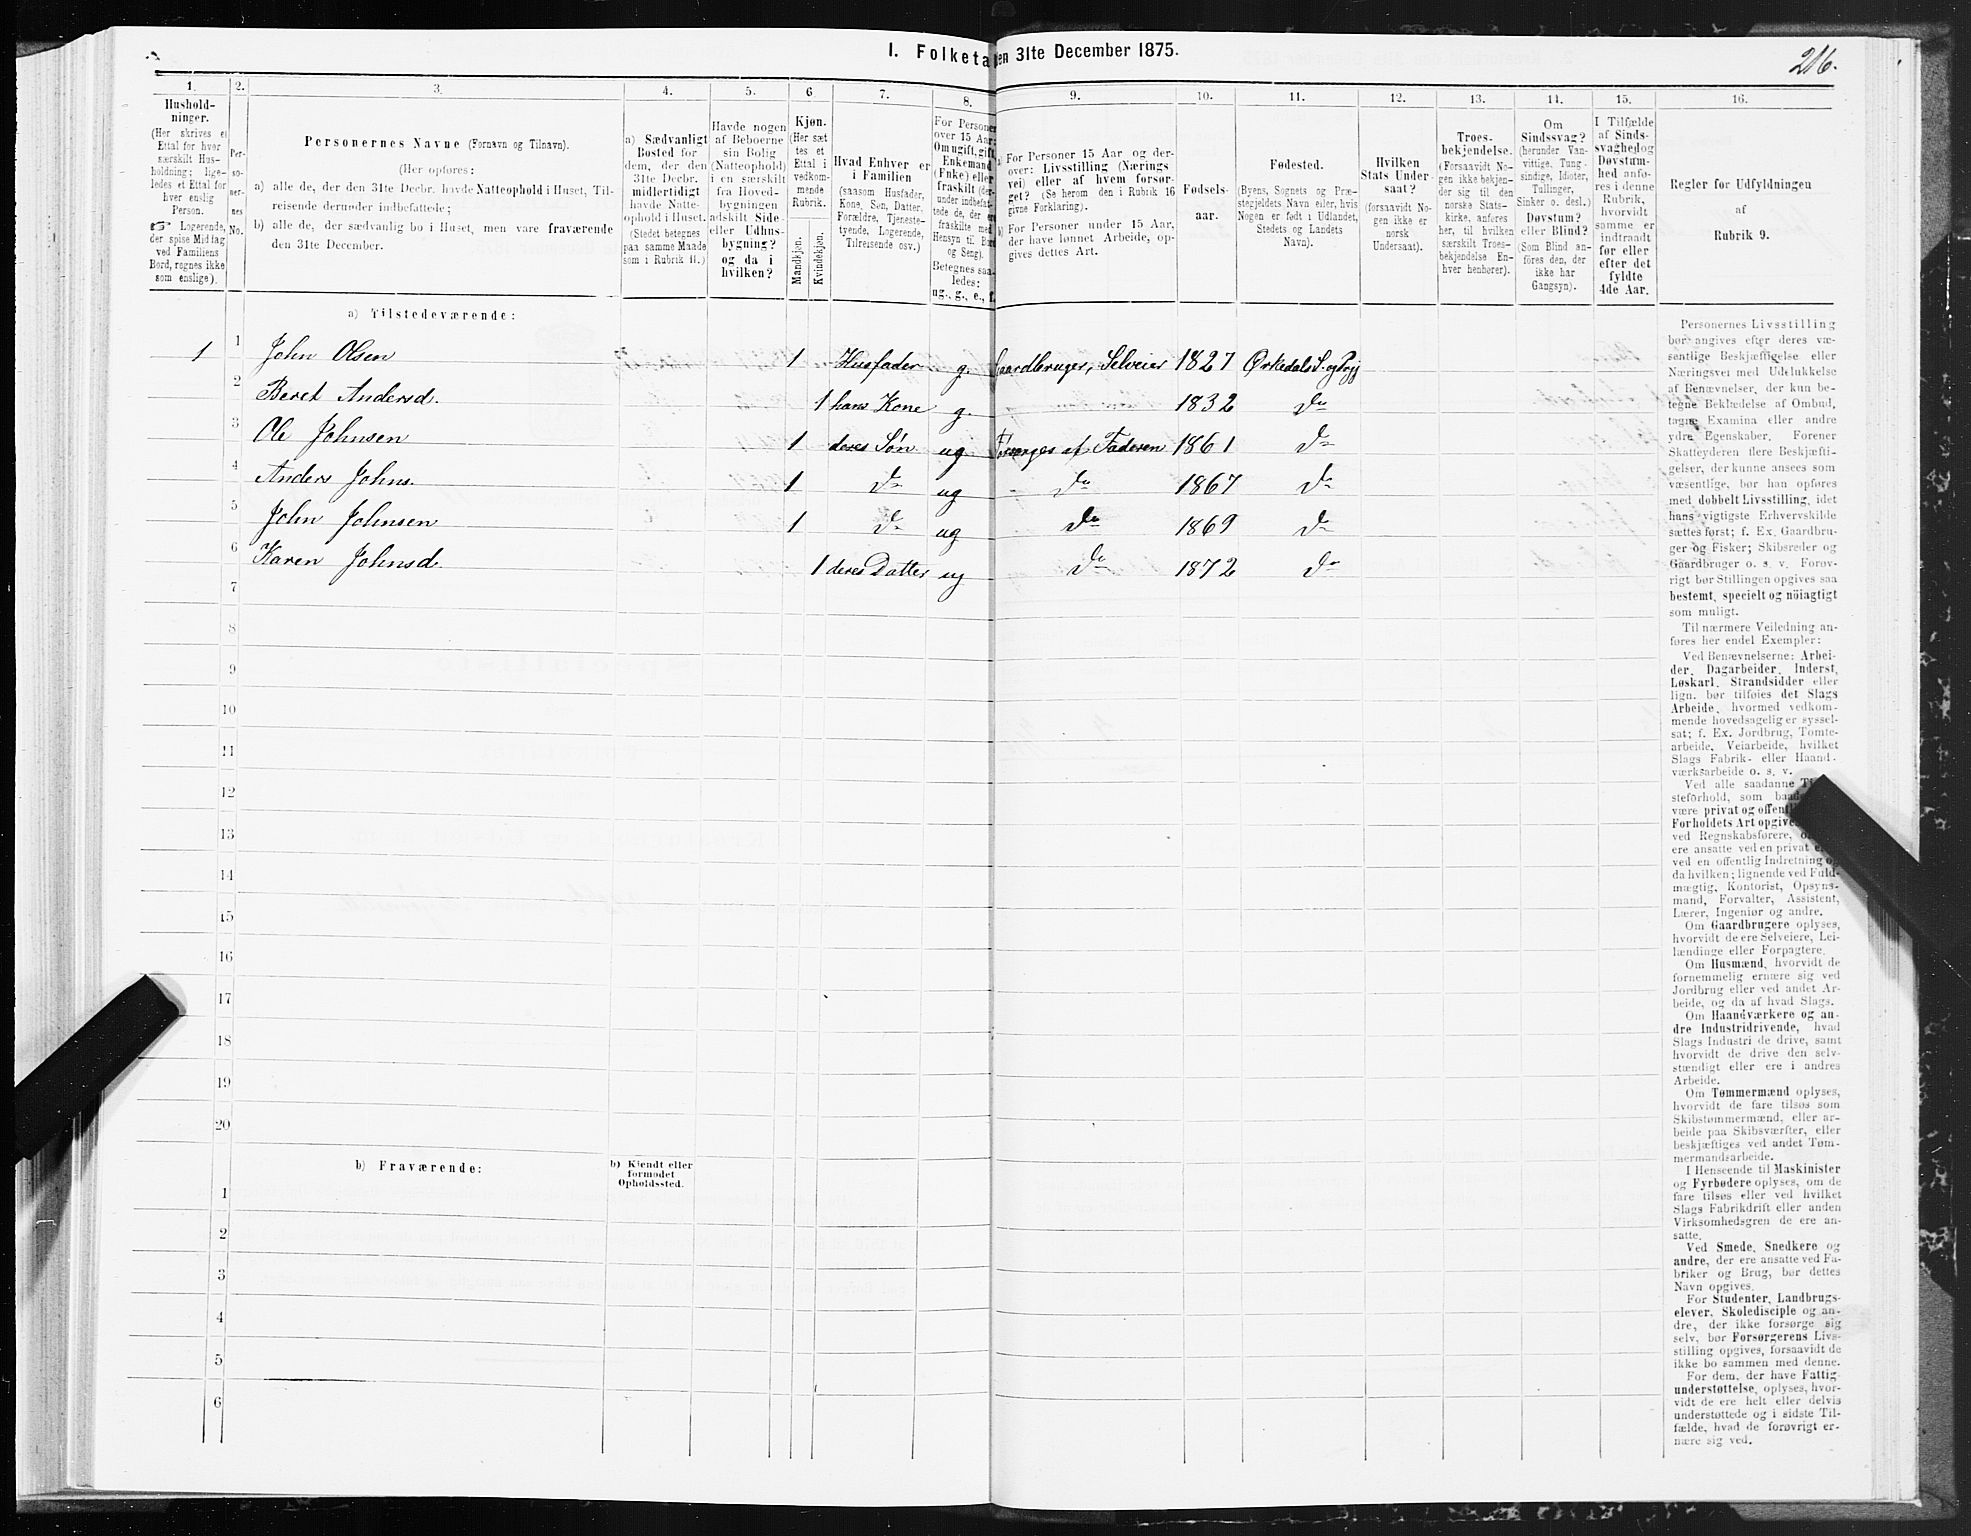 I. Folketa
en 31te December 1875.
216.
1.
2.
3.
4.
5.
6
7.
8.
9.
10.
11.
12.
13.
14.
15.
16.
Hushold-
ninger.
(Her skrives et
Ettal for hver
særskilt Hus-
holdning; lige-
ledes et Ettal for
hver enslig
Person.
☞ Logerende,
der spise Middag
ved Familiens
Bord, regnes ikke
som enslige).
Per-
so-
ner-
nes
No.
Personernes Navne (Fornavn og Tilnavn).
(Her opføres:
a) alle de, der den 31te Decbr. havde Natteophold i Huset, Til-
reisende derunder indbefattede;
b) alle de, der sædvanlig bo i Huset, men vare fraværende
den 31te December.
a) Sædvanligt
Bosted for
dem, der den
31te Decbr.
midlertidigt
havde Natte-
ophold i Huset.
(Stedet betegnes
paa samme Maade
som i Rubrik 11.)
Havde nogen
af Beboerne
sin Bolig
(Natteophold)
i en særskilt
fra Hoved-
bygningen
adskilt Side-
eller Udhus-
bygning?
og da i
hvilken?
Kjøn.
(Her sæt
tes et
Ettal i
vedkom-
mende
Rubrik.
Mandkjøn.
Kvindekjøn.
Hvad Enhver er
i Familien
(saasom Husfader,
Kone, Søn, Datter,
Forældre, Tjeneste-
tyende, Logerende,
Tilreisende osv.)
For Personer
over 15 Aar:
Om ugift, gift,
Enkemand
(Enke) eller
fraskilt (der-
under indbefat-
tede de, der ere
fraskilte med
Hensyn til Bord
og Seng).
Betegnes saa-
ledes:
ug., g., e., f.
a) For Personer 15 Aar og der-
over: Livsstilling (Nærings-
vei) eller af hvem forsør-
get? (Se herom den i Rubrik 16
givne Forklaring).
b) For Personer under 15 Aar,
der have lønnet Arbeide, op-
gives dettes Art.
Fødsels-
aar.
Fødested.
(Byens, Sognets og Præ-
stegjeldets Navn eller, hvis
Nogen er født i Udlandet,
Stedets og Landets
Navn).
Hvilken
Stats Under-
saat?
(forsaavidt No-
gen ikke er
norsk
Undersaat).
Troes-
bekjendelse.
(Forsaavidt No-
gen ikke bekjen-
der sig til den
norske Stats-
kirke, anføres
her, til hvilken
særskilt Troes-
bekjendelse En-
hver henhører).
Om
Sindssvag?
(herunder Van-
vittige, Tung-
sindige, Idioter,
Tullinger,
Sinker o. desl.)
Døvstum?
eller Blind?
(Som Blind an-
føres den, der
ikke har
Gangsyn).
I Tilfælde
af Sinds-
svaghed og
Døvstum-
hed anfø-
res i denne
Rubrik,
hvorvidt
samme er
indtraadt
før eller
efter det
fyldte
4de Aar.
Regler for Udfyldningen
af
Rubrik 9.
a) Tilstedeværende:
1 1 John Olsen 1 Husfader g. Gaardbruger, Selveier 1827 Ørkedals S. og Prgj
2 Beret Andersd. 1 hans Kone g. 1832 do
3 Ole Johnsen 1 deres Søn ug. Forsørges af Faderen 1861 do
4 Anders Johns. 1 do ug do 1867 do
5 John Johnsen 1 do ug do 1869 do
6 Karen Johnsd. 1 deres Datter ug do 1872 do
7
8
9
10
11
12
13
15
16
17
18
19
20
b) Fraværende:
b) Kjendt eller
formodet
Opholdssted.
1
2
3
4
5
6
Personernes Livsstilling
bør angives efter deres væ-
sentlige Beskjæftigelse eller
Næringsvei med Udelukkelse
af Benævnelser, der kun be-
tegne Beklædelse af Ombud,
tagne Examina eller andre
ydre Egenskaber. Forener
Skatteyderen flere Beskjæfti-
gelser, der kunne ansees som
væsentlige, bør han opføres
med dobbelt Livsstilling, idet
hans vigtigste Erhvervskilde
sættes først; f. Ex. Gaardbru-
ger og Fisker; Skibsreder og
Gaardbruger o. s. v. Forøv-
rigt bør Stillingen opgives saa
bestemt, specielt og nöiagtigt
som muligt.
Til nærmere Veiledning an-
føres her endel Exempler:
Ved Benævnelserne: Arbei-
der, Dagarbeider, Inderst,
Løskarl, Strandsidder eller
lign. bør tilføies det Slags
Arbeide, hvormed vedkom-
mende hovedsagelig er syssel-
sat; f. Ex. Jordbrug, Tomte-
arbeide, Veiarbeide, hvilket
Slags Fabrik- eller Haand-
værksarbeide o. s. v.
Ved alle saadanne
steforhold, som
være privat og
Forholdets Art
ved Regnskabsførere,
ere ansatte ved en privat
ved en offentlig Indretning og
da hvilken; lignende ved Fuld-
mægtig, Kontorist, Opsyns-
mand, Forvalter, Assistent,
Lærer, Ingeniør og andre.
Om Gaardbrugere oplyses,
hvorvidt de ere Selveiere, Lei-
lændinge eller Forpagtere.
Om Husmænd, hvorvidt de
fornemmelig ernære sig ved
Jordbrug eller ved andet Ar-
beide, og da af hvad Slags.
Om Haandværkere og an-
dre Industridrivende, hvad
Slags Industri de drive, samt
hvorvidt de drive den selv-
stændigt eller ere i andres
Arbeide.
Om Tømmermænd oplyses,
hvorvidt de fare tilsøs som
Skibstømmermænd, eller ar-
beide paa Skibsværfter, eller
beskjæftiges ved andet Tøm-
mermandsarbeide.
I Henseende til Maskinister
og Fyrbødere oplyses, om de
fare tilsøs eller ved hvilket
Slags Fabrikdrift eller anden
Virksomhedsgren de ere an-
satte.
Ved Smede, Snedkere og
andre, der ere ansatte ved Fa-
briker og Brug, bør dettes
Navn opgives.
For Studenter, Landbrugs-
elever, Skoledisciple og an-
dre, der ikke forsørge sig
selv, bør Forsørgerens Livs-
stilling opgives, forsaavidt de
ikke bo sammen med denne.
For dem, der have Fattig-
understøttelse, oplyses, hvor-
vidt de ere helt eller delvis
understøttede og i sidste Til-
fælde, hvad de forøvrigt er-
nære sig ved.